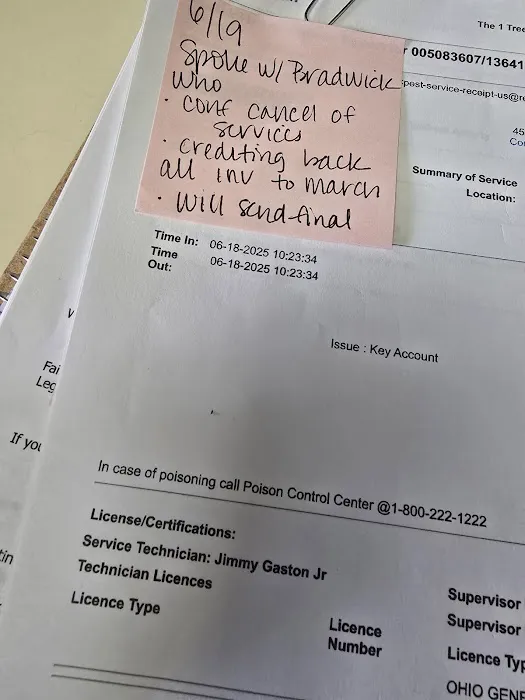 6/19
Spoke w/ Bradwick
who
· conf cancel of
services
· crediting back
all inv to march
· will send final
The 1 Tree
005083607/13641
pest-service-receipt-us@re
45
Summary of Service
Location:
Time In: 06-18-2025 10:23:34
Time
Out: 06-18-2025 10:23:34
Issue : Key Account
Fai
Leg
If you
In case of poisoning call Poison Control Center @1-800-222-1222
License/Certifications:
Service Technician: Jimmy Gaston Jr
Technician Licences
Licence Type
Licence
Number
Supervisor
Supervisor
Licence Typ
OHIO GENE